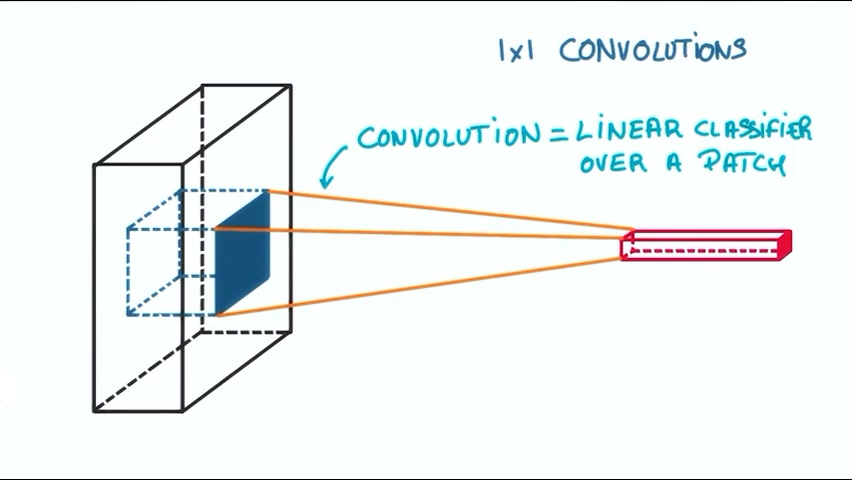 1x1 CONVOLUTIONS
CONVOLUTION = LINEAR CLASSIFIER
OVER A PATCH